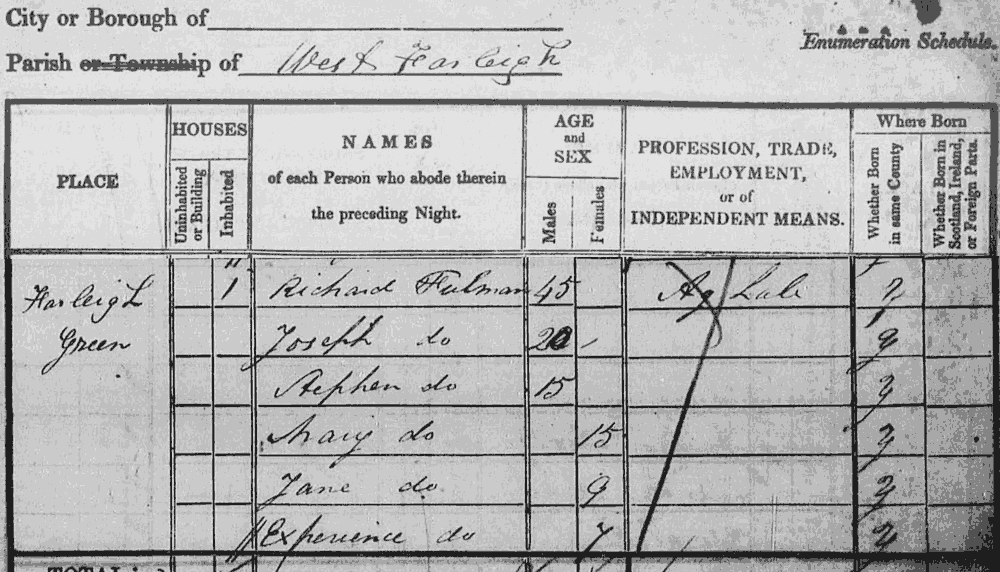 City or Borough of
Enumeration Schedule.
Parish or Township of West Farleigh
PLACE
HOUSES
Uninhabited or Building
Inhabited
NAMES
of each Person who abode therein
the preceding Night.
AGE
and
SEX
Males
Females
PROFESSION, TRADE,
EMPLOYMENT,
or of
INDEPENDENT MEANS.
Where Born
Whether Born in same County
Whether Born in Scotland, Ireland, or Foreign Parts.
Farleigh 1 Richard Fulman 45 Ag Lab
Green Joseph do 20 y
Stephen do 15 y
Mary do 15 y
Jane do 9 y
Experience do 7 y